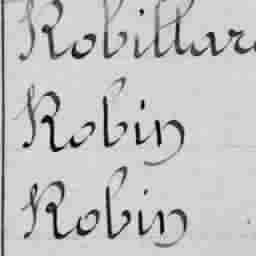 Robillard
Robin
Robin